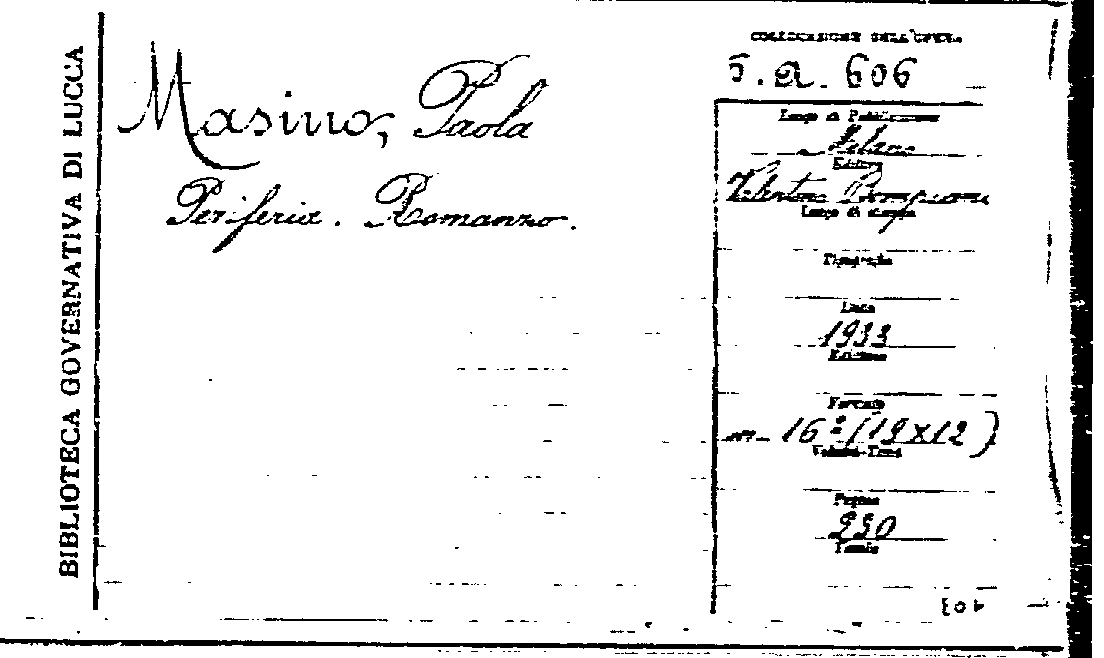 BIBLIOTECA GOVERNATIVA DI LUCCA
Masino, Paola
Periferia. Romanzo.
COLLOCAZIONE DELL'OPERA
5. a. 606
Luogo di Pubblicazione
Milano
Editore
Valentino Bompiani
Luogo di stampa
Tipografia
Data
1933
Edizione
Formato
in- 16º (19x12)
Volumi-Tomi
Pagine
230
Tavole